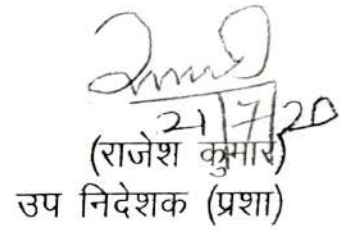 21/7/20
(राजेश कुमार)
उप निदेशक (प्रशा)